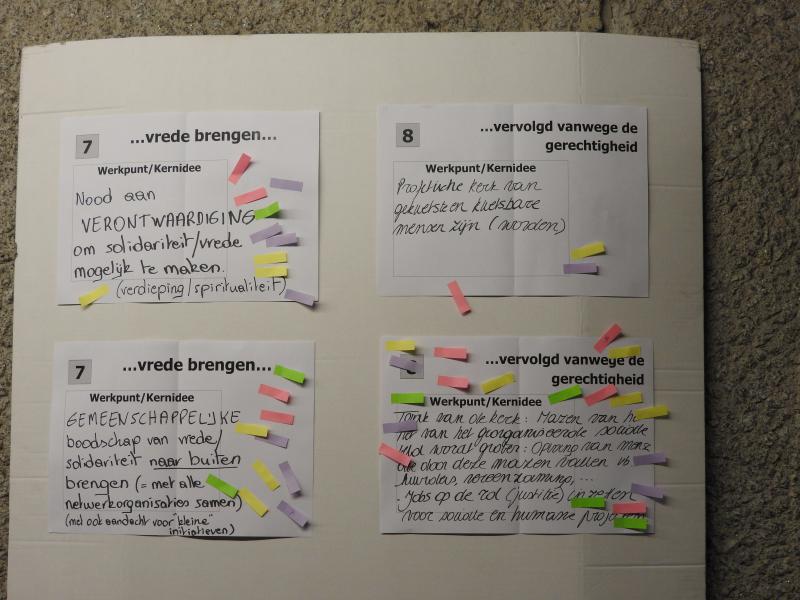 7
...vrede brengen...
Werkpunt/Kernidee
Nood aan
VERONTWAARDIGING
om solidariteit/vrede
mogelijk te maken.
(verdieping/spiritualiteit)
8
...vervolgd vanwege de
gerechtigheid
Werkpunt/Kernidee
Profetische kerk van
gekwetste en kwetsbare
mensen zijn (worden)
7
...vrede brengen...
Werkpunt/Kernidee
GEMEENSCHAPPELIJKE
boodschap van vrede/
solidariteit naar buiten
brengen (= met alle
netwerkorganisaties samen)
(met ook aandacht voor "kleine"
initiatieven)
...vervolgd vanwege de
gerechtigheid
Werkpunt/Kernidee
van de kerk: Mazen van
van het georganiseerde sociale
wordt groter: Opvang van
die door deze mazen vallen vb
vereenzaming, ...
op de rol (justitie) inzetten
voor sociale en humane